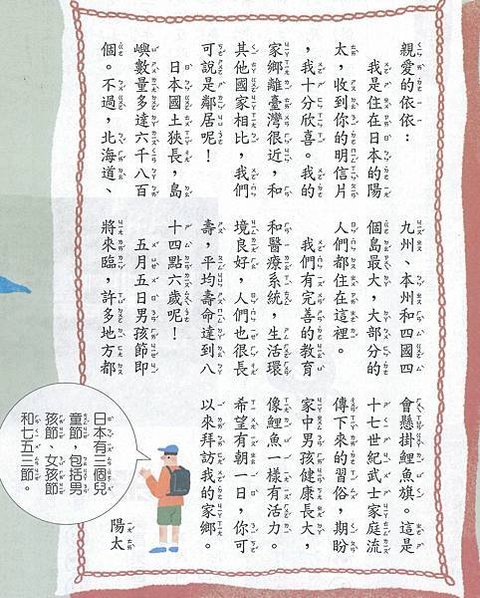 親愛的依依：
我是住在日本的陽
太，收到你的明信片
，我十分欣喜。我的
家鄉離臺灣很近，和
其他國家相比，我們
可說是鄰居呢！
日本國土狹長，島
嶼數量多達六千八百
個。不過，北海道、
九州、本州和四國四
個島最大，大部分的
人們都住在這裡。
我們有完善的教育
和醫療系統，生活環
境良好，人們也很長
壽，平均壽命達到八
十四點六歲呢！
五月五日男孩節即
將來臨，許多地方都
會懸掛鯉魚旗。這是
十七世紀武士家庭流
傳下來的習俗，期盼
家中男孩健康長大，
像鯉魚一樣有活力。
希望有朝一日，你可
以來拜訪我的家鄉。
陽太
日本有三個兒
童節，包括男
孩節、女孩節
和七五三節。